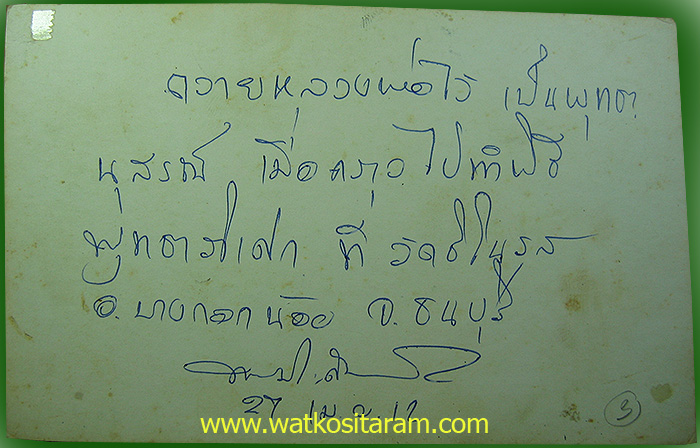 ถวายหลวงพ่อไร เป็นพุทธา
นุสรณ์ เมื่อคราวไปทำพิธี
พุทธาภิเศก ที่ วัดชิโนรส
อ. บางกอกน้อย จ. ธนบุรี
27 เม.ย. 17
www.watkositaram.com
3